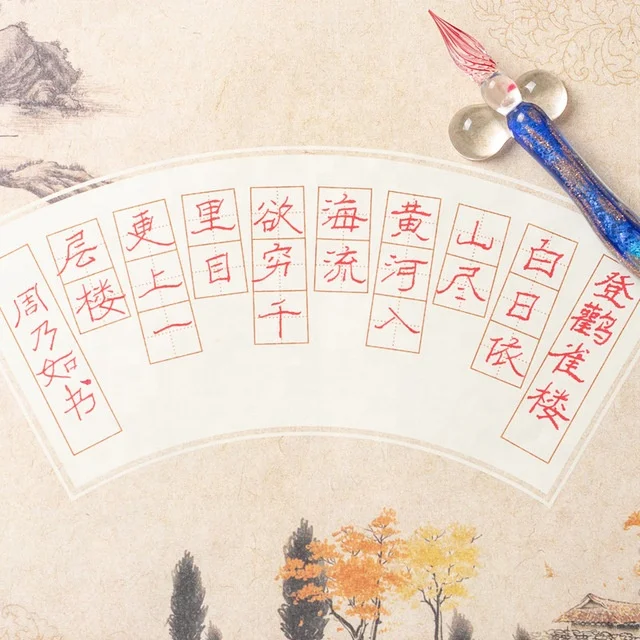 登鹳雀楼
白日依
山尽
黄河入
海流
欲穷千
里目
更上一
层楼
周乃如书